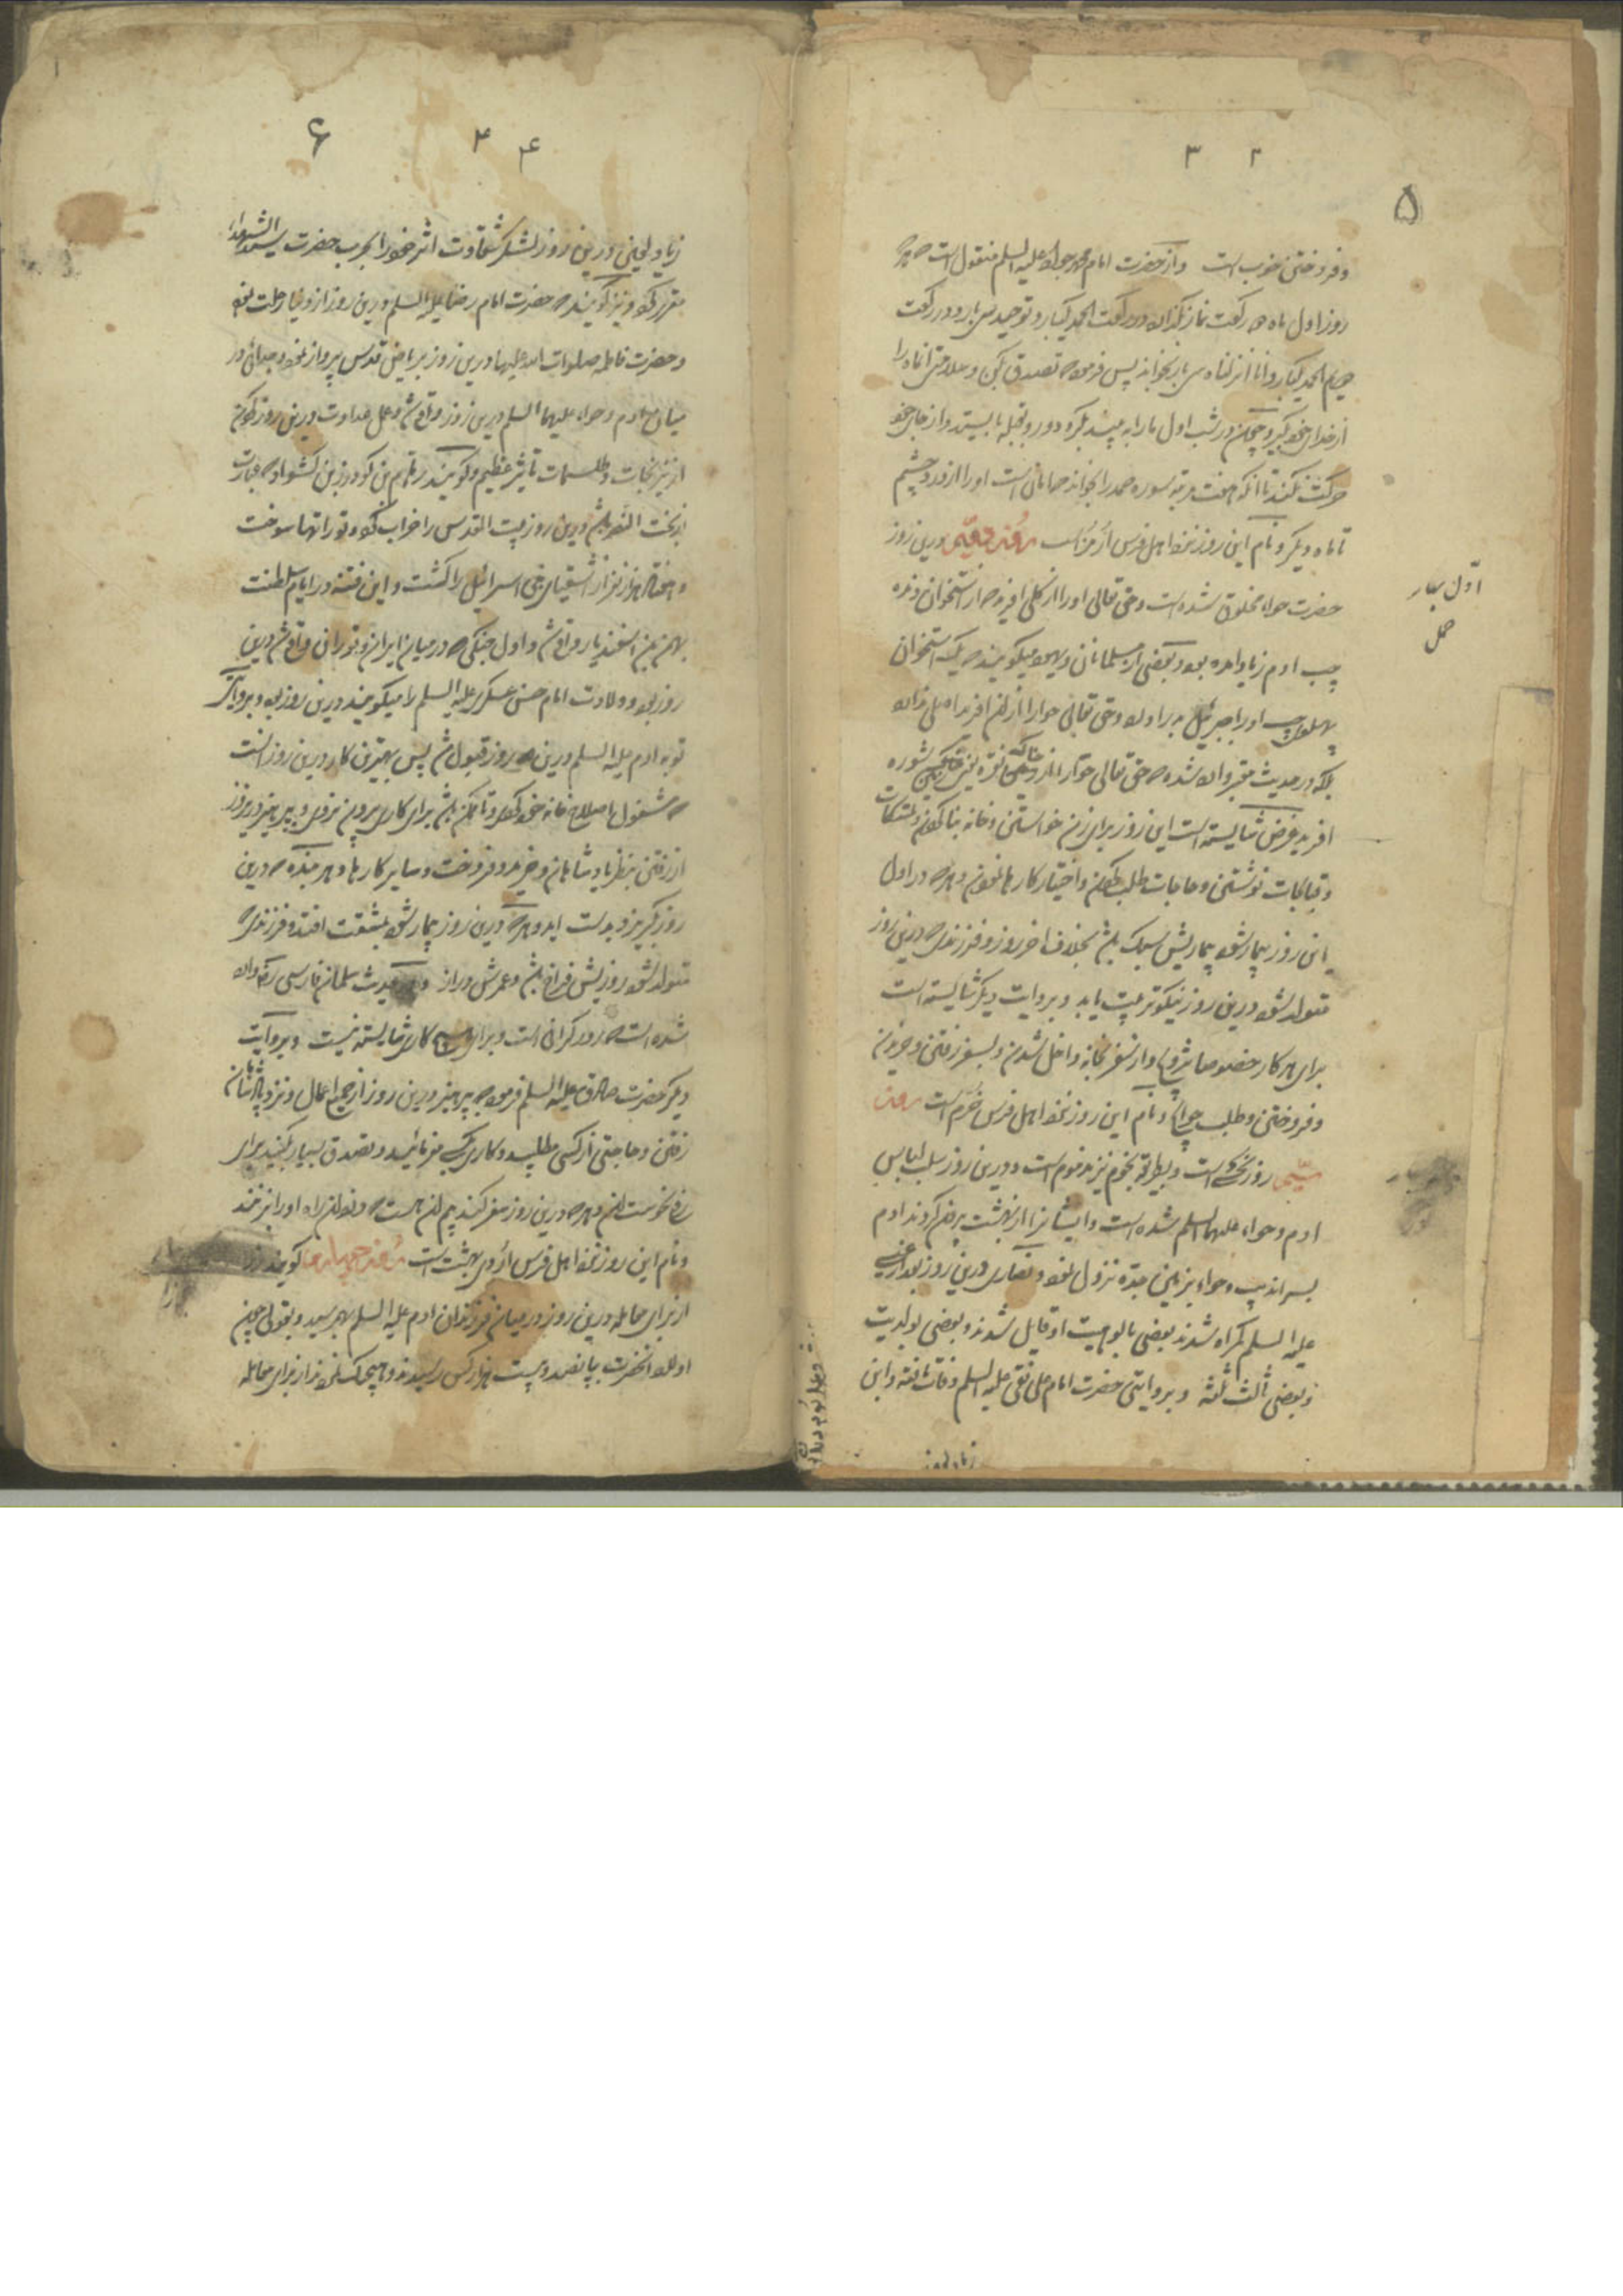 ۵
۲ ۳
و فروختن خوب است و از حضرت امام محمد جواد علیه السلم منقول است که هر
روز اول ماه دو رکعت نماز بگذارد در رکعت الحمد یکبار و توحید سی بار و در رکعت
دویم الحمد یکبار و انا انزلناه سی بار بخواند پس فرمود که تصدق بکن و سلامتی آنماه را
از خدای خود بگیر و چون در شب اول ماه را به بیند بگرد و رو بقبله بایستد و از جای خود
حرکت نکند تا آنکه هفت مرتبه سوره حمد را بخواند امانست او را از درد چشم
تا ماه دیگر و نام این روز نزد اهل فرس اورمزد است روز دویم درین روز
حضرت حواء مخلوق شده است و حق تعالی او را از گلی آفرید که از استخوان دنده
چپ ادم زیاد امده بود و بعضی از مسلمانان و یهود میگویند که یک استخوان
پهلوی چپ او را جبرئیل بدر اورد و حق تعالی حوا را از ان افرید
بلکه در حدیث معتبر وارد شده که حق تعالی حوا را از
افرید غرض شایسته است این روز برای زن خواستن و خانه بنا کردن و تمسکات
و قبالجات نوشتن و حاجات طلب کردن و اختیار کارها نمودن و هر که در اول
این روز بیمار شود بیماریش سبک باشد بخلاف اخر روز و فرزندی که درین روز
متولد شود درین روز نیکو تربیت یابد و بروایت دیگر شایسته است
برای هر کار خصوصا تزویج و از سفر بخانه داخل شدن و بسفر رفتن و خریدن
و فروختن و طلب حوایج و نام این روز نزد اهل فرس است روز
سیم روز نحس است و بطریقه نجوم نیز مذموم است و درین روز سلب لباس
ادم و حواء علیهما السلم شده است و ایشانرا از بهشت بیرون کردند ادم
بسراندیب و حواء بزمین جده نزول نمود و نصاری درین روز بعد از عیسی
علیه السلم گمراه شدند بعضی بالوهیت او قایل شدند و بعضی بولدیت
و بعضی ثالث ثلثه و بروایتی حضرت امام علی نقی علیه السلم وفات یافته و ابن
زیاد لعین
اول بهار
حمل
۶
۴ ۴
زیاد لعین درین روز لشکر شقاوت اثر خود را بحرب حضرت سید الشهدا
مقرر کرد و نیز گویند که حضرت امام رضا علیه السلم درین روز از دنیا رحلت نمود
و حضرت فاطمه صلوات الله علیها درین روز بریاض قدس پرواز نمود و جدائی در
میان ادم و حواء علیهما السلم درین روز واقع شد و عمل عداوت درین روز کردن
از نیرنجات و طلسمات تأثیر عظیم دارد و گویند رهام بن گودرز بن کشواد که عبارت
از بخت النصر باشد درین روز بیت المقدس را خراب کرد و تورانها سوخت
و هفتاد هزار نفر از اشقیای بنی اسرائیل را کشت و این فتنه در ایام سلطنت
بهمن بن اسفندیار واقع شد و اول جنگی که در میان ایران و توران واقع شد درین
روز بود و ولادت امام حسن عسکری علیه السلم را میگویند درین روز بود و بروایتی
توبه ادم علیه السلم درین روز قبول شد پس بهترین کار درین روز انست
که مشغول باصلاح خانه خود گردد و تا ممکن باشد برای کاری بیرون نرود و بپرهیزد درین روز
از رفتن بنظر پادشاهان و خرید و فروخت و سایر کارها و هر بنده که درین
روز بگریزد بدست اید و هر که درین روز بیمار شود بمشقت افتد و فرزندی که
متولد شود روزیش فراخ باشد و عمرش دراز و در حدیث سلمان فارسی رض وارد
شده است که روز گرانی است و برای هیچ کاری شایسته نیست و بروایت
دیگر حضرت صادق علیه السلم فرمود که بپرهیز درین روز از جمیع اعمال و نزد پادشاهان
رفتن و حاجتی از کسی مطلبید و کاری بکسی مفرمائید و تصدق بسیار بکنید برای
رفع نحوست ان و هر که درین روز سفر کند بیم ان هست که دزدان راه او را بزنند
و نام این روز نزد اهل فرس اردی بهشت است روز چهارم گویند نزاع
از برای معامله درین روز در میان فرزندان ادم علیه السلم بهم رسید و بقولی چون
اولاد انحضرت به پانصد و بیست هزار کس رسیدند و هیچیک نبودند از برای معامله